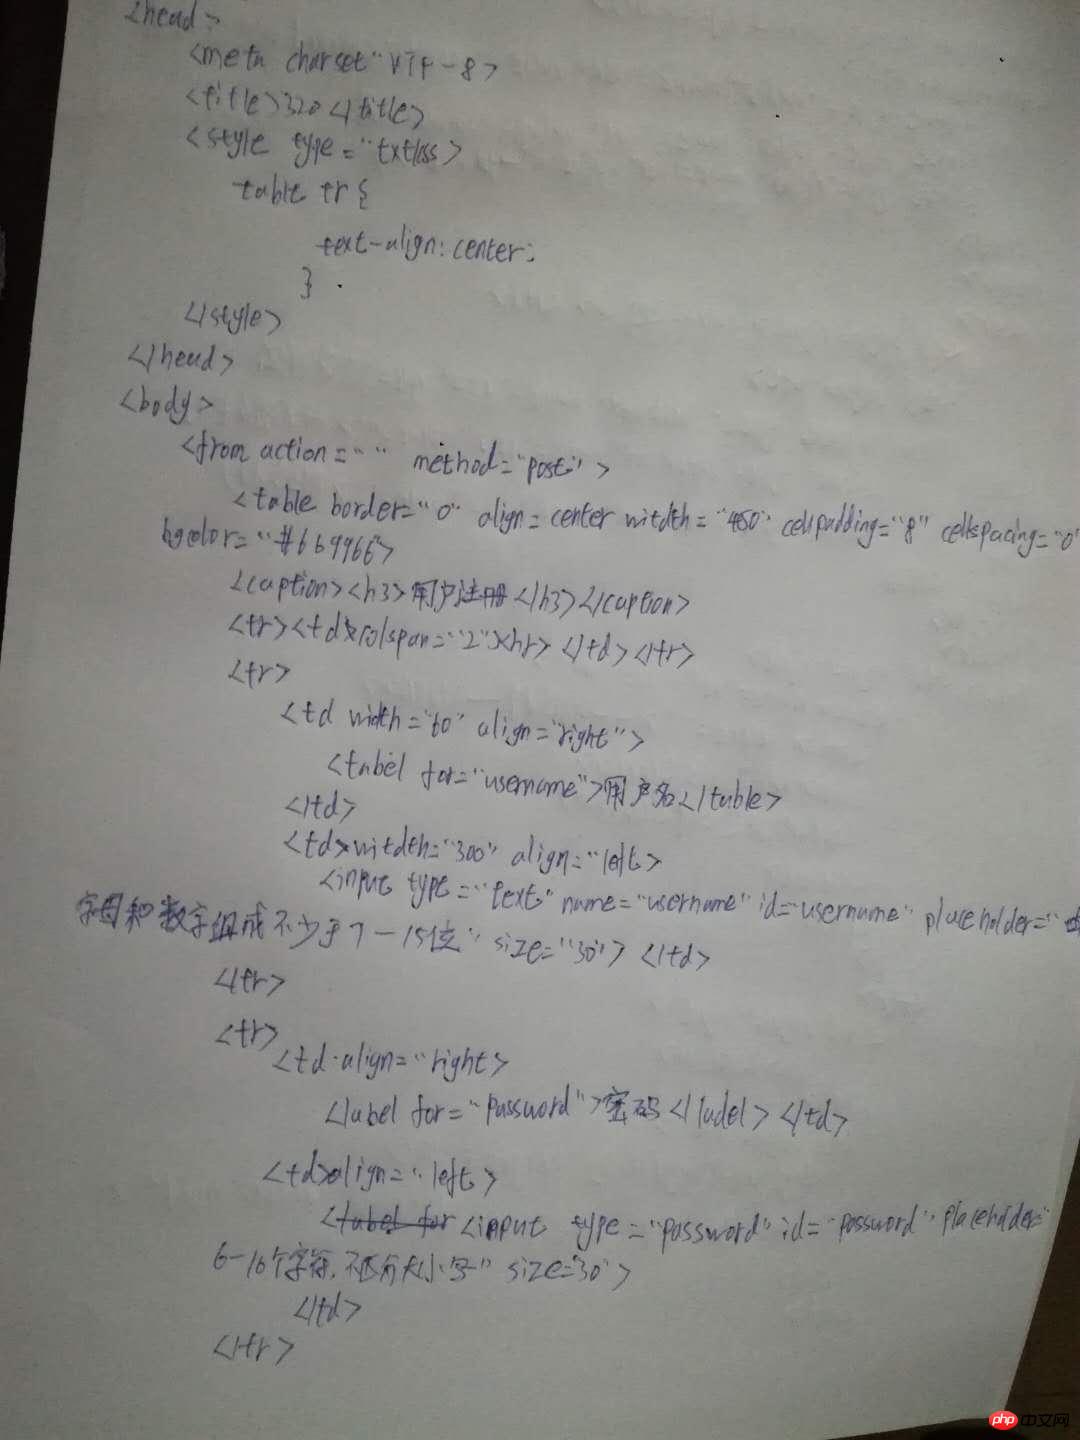 <head>
<meta charset="UTF-8>
<title>320</title>
<style type="txt/css>
table tr{
text-align:center;
}
</style>
</head>
<body>
<from action="" method="post">
<table border="0" align=center witdth="450" cellpadding="8" cellspacing="0"
bgcolor="#669966">
<caption><h3>用户注册</h3></caption>
<tr><td colspan="2"><hr></td></tr>
<tr>
<td width="60" align="right">
<tabel for="username">用户名</table>
</td>
<td witdth="300" align="left>
<input type="text" name="username" id="username" placeholder="
字母和数字组成不少于7-15位" size="30"></td>
</tr>
<tr>
<td align="right>
<label for="password">密码</ladel></td>
<td align="left>
<input type="password" id="password" placeholder="
6-16个字符,不区分大小写" size="30">
</td>
</tr>
php 中文网